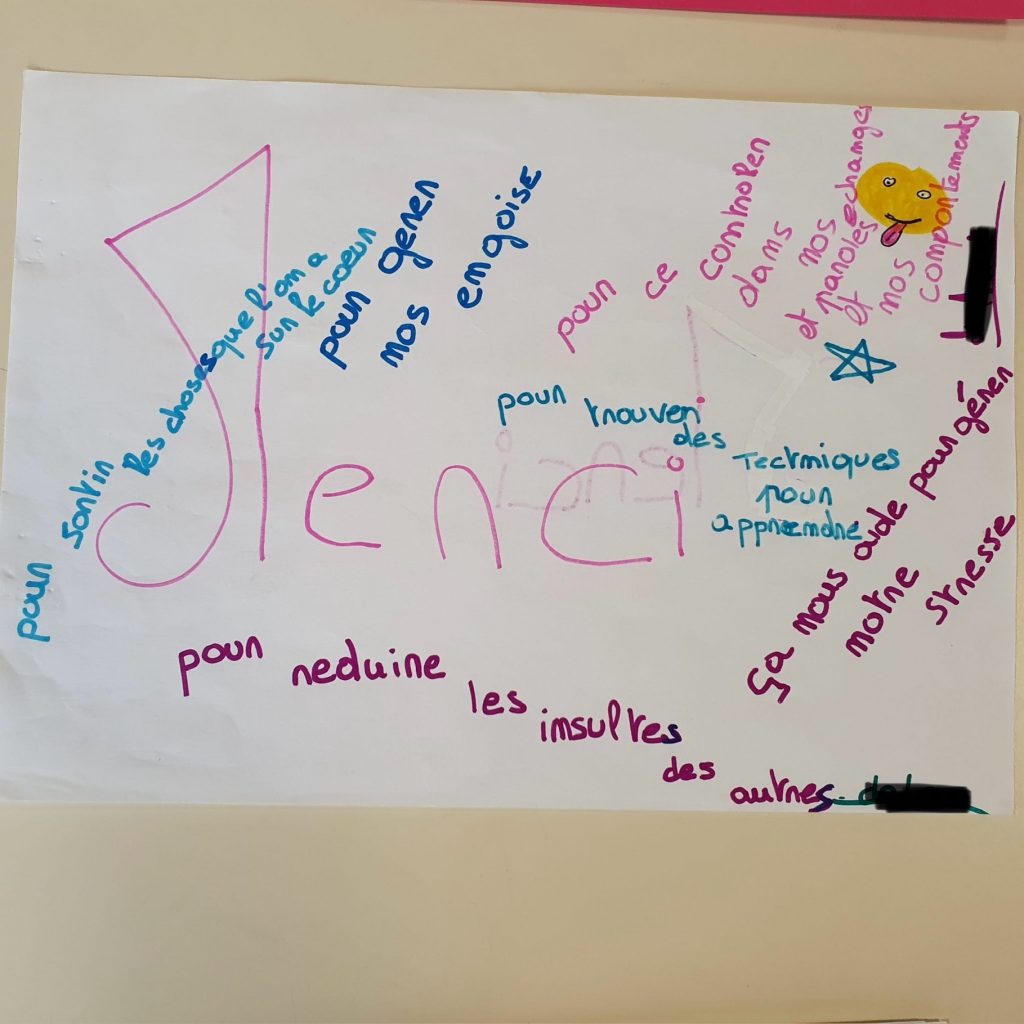 pour sortir les choses que l'on a
sur le coeur
pour gerer
nos engoise
pour ce controler
dans nos echanges
et paroles
et nos comportements
Merci
pour trouver
des Techniques
pour
apprendre
ça nous aide pour gérer
notre stresse
pour reduire les insultes des autres.